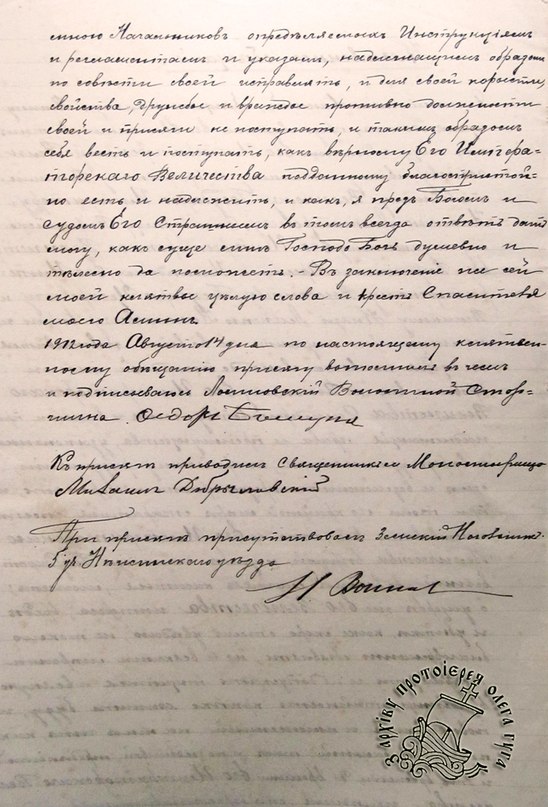 мною Начальниковъ опредѣляемымъ Инструкціямъ
и регламентамъ и указамъ, надлежащимъ образомъ
по совѣсти своей исправлять, и для своей корысти,
свойства дружбы и вражды противно должности
своей и присяги не поступать, и такимъ образомъ
себя весть и поступать, какъ вѣрному Его Импера-
торскаго Величества подданному благопристой-
но есть и надлежитъ, и какъ я предъ Богомъ и
судомъ Его Страшнымъ въ томъ всегда отвѣтъ дать
могу, какъ суще мнѣ Господь Богъ душевно и
тѣлесно да поможетъ. - Въ заключеніе же сей
моей клятвы цѣлую слова и крестъ Спасителя
моего Аминь.
1912 года Августа 14 дня по настоящему клятвен-
ному обѣщанію присягу выполнилъ въ чемъ
и подписываюсь Волостной Стар-
шина Ѳедоръ
Къ присягѣ приводилъ Священникъ с. Монастырища
Михаилъ Добрыловскій
При присягѣ присутствовалъ Земскій Начальник.
5 уч. Нѣжинскаго уѣзда
З архіву протоієрея Олега